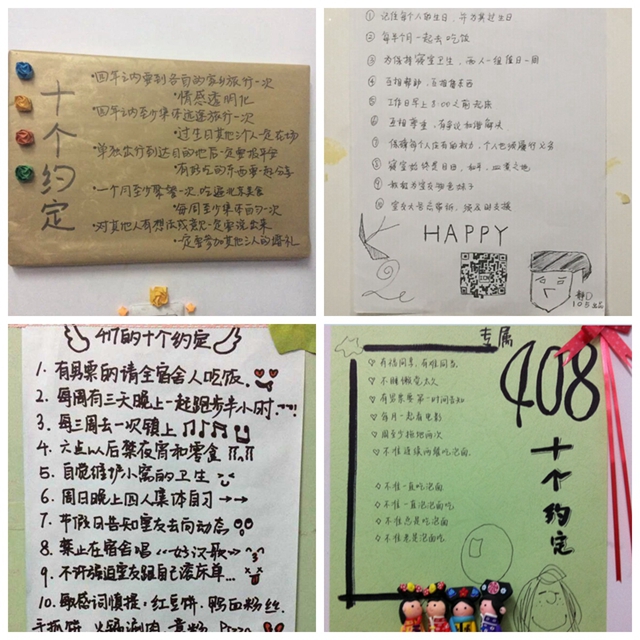 十个约定
·四年之内要到各自的家乡旅行一次
·情感透明化
·四年内至少集体远途旅行一次
·过生日其他人一定在场
·单独出行到达目的地后一定要报平安
·有好吃的东西要一起分享
·一个月至少聚餐一次,吃遍北京美食
·每周至少集体自习一次
·对其他人有想法或意见一定要说出来
·一定要参加其他人的婚礼
① 记住每个人的生日,并为其过生日
② 每半个月一起去吃饭
③ 为保持寝室卫生,两人一组值日一周
④ 互相帮助,互相鼓励
⑤ 工作日早上8:00之前起床
⑥ 互相尊重,有争议和谐解决
⑦ 保障每个人应有的权力,个人也须履行义务
⑧
⑨
⑩
HAPPY
静D
105
417的十个约定
1. 有男票的请全宿舍人吃饭.
2. 每周有三天晚上一起跑步半小时.
3. 每三周去一次镇上
4. 六点以后禁夜宵和零食
5. 自觉维护小窝的卫生
6. 周日晚上四人集体自习→→
7. 节假日告知室友去向动态
8. 禁止在宿舍唱《好汉歌》
9. 不许强迫室友跟自己滚床单...
10. 敏感词慎提,红豆饼,鸭血粉丝.
手抓饼,火锅涮肉,Pizza
专属
408
十个约定
◇ 有福同享,有难同当
◇ 不睡懒觉太久
◇ 有男票要第一时间告知
◇ 每月一起看电影
◇ 周至少拖地两次
◇ 不准连续两餐吃泡面
◇ 不准一直吃泡面
◇ 不准一直泡泡面吃
◇ 不准总是吃泡面
◇ 不准老是泡面吃